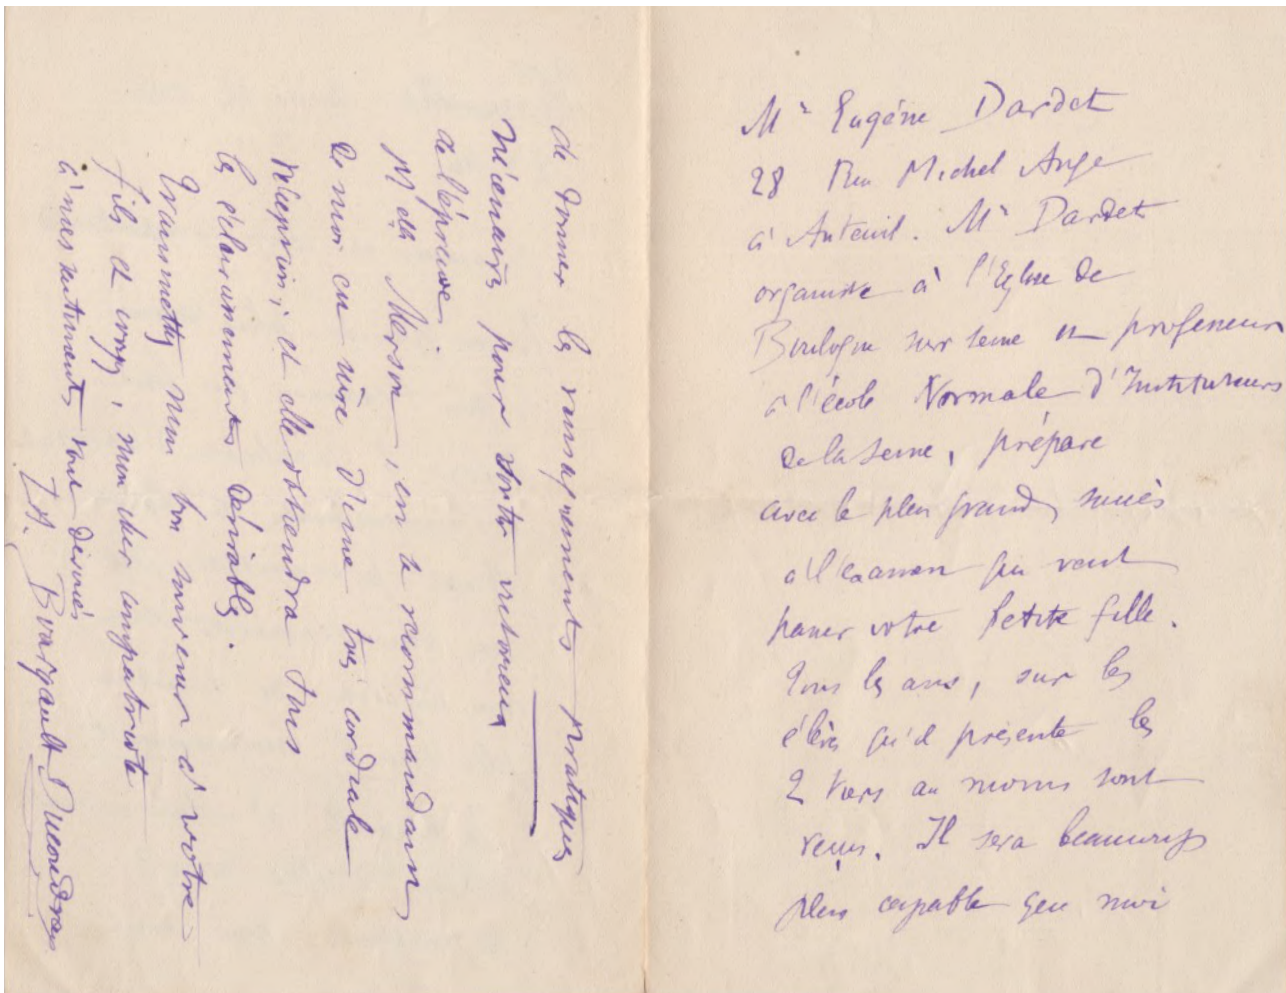 Mr Eugène Dardet
28 Rue Michel Ange
à Auteuil. Mr Dardet
organiste à l'Eglise de
Boulogne sur Seine et professeur
à l'école Normale d'Instituteurs
de la Seine, prépare
avec le plus grand succès
à l'examen que veut
passer votre petite fille.
Tous les ans, sur les
élèves qu'il présente les
2 tiers au moins sont
reçus. Il sera beaucoup
plus capable que moi
de donner les renseignements pratiques
nécessaires pour sortir victorieux
de l'épreuve.
Melle Merson, en se recommandant
de moi en sera d'une très cordiale
réception, et elle obtiendra tous
les éclaircissements désirables.
Transmettez mon bon souvenir à votre
fils et croyez, mon cher compatriote
à mes sentiments dévoués
L.A. Bourgault Ducoudray